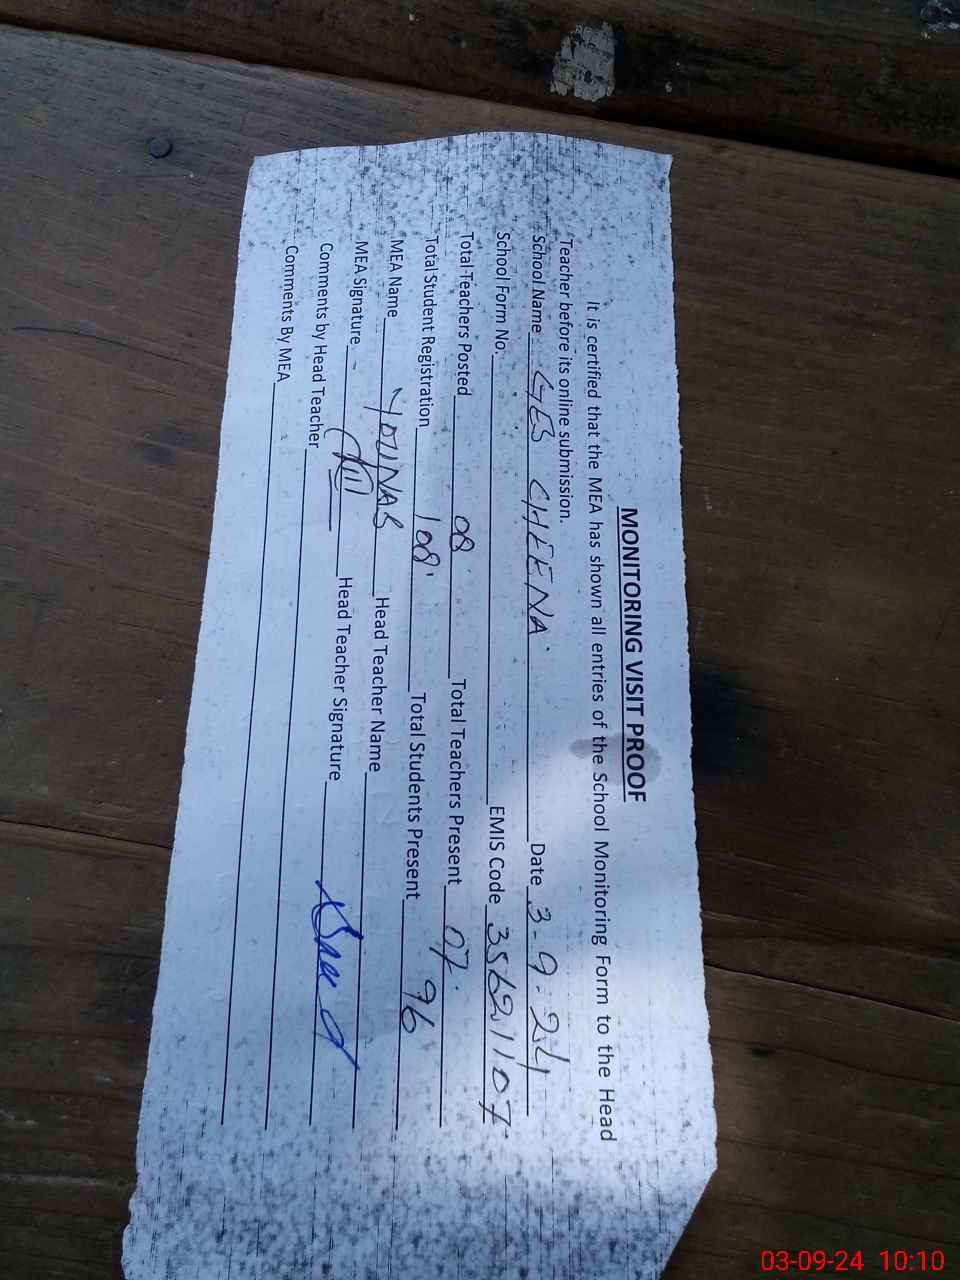 MONITORING VISIT PROOF
It is certified that the MEA has shown all entries of the School Monitoring Form to the Head
Teacher before its online submission.
School Name GES CHEENA Date 3-9-24
School Form No. EMIS Code 35621107
Total Teachers Posted 08 Total Teachers Present 07
Total Student Registration 108 Total Students Present 96
MEA Name YOUNAS Head Teacher Name
MEA Signature Head Teacher Signature
Comments by Head Teacher
Comments By MEA
03-09-24 10:10